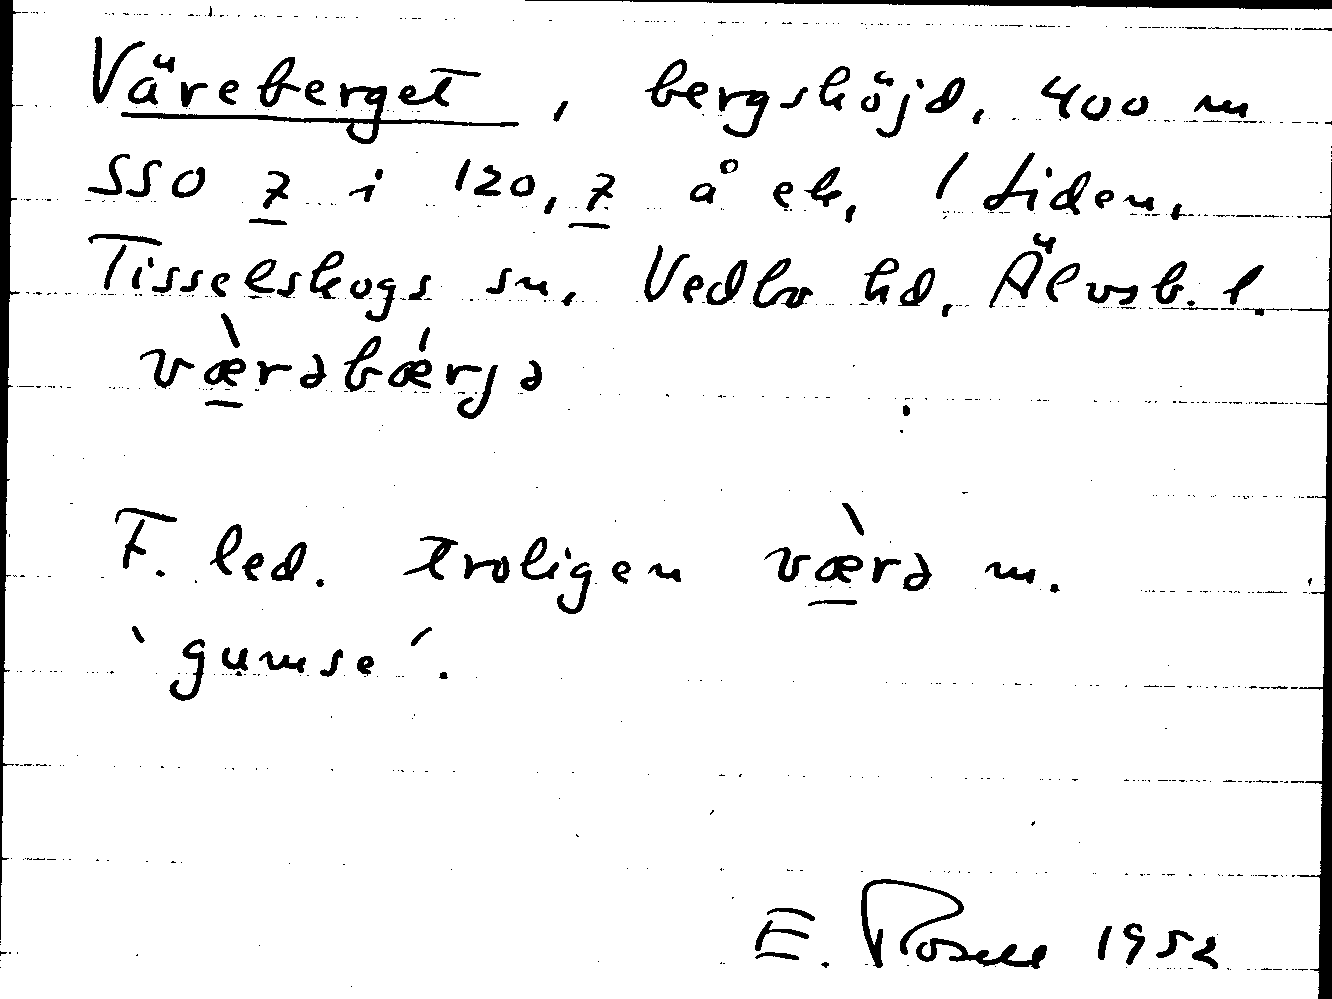 Väreberget, bergshöjd, 400 m
SSO 7 i 120,7 å ek, 1 Liden,
Tisselskogs sn, Vedbo hd, Älvsb. l.
væ̀rəbǽrjə
F. led. troligen væ̀rə m.
`gumse´.
E. Rosell 1952